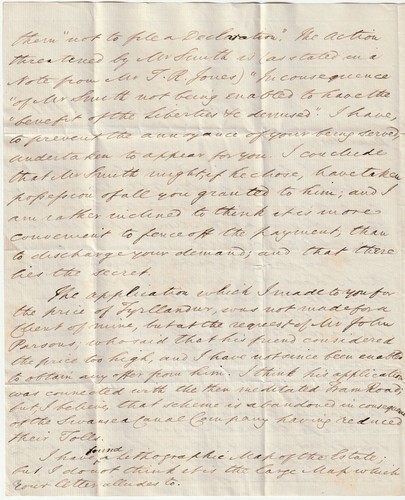 them "not to file a Declaration." The Action
threatened by Mr Smith is (as stated in a
Note from Mr T. R. Jones) "In consequence
"of Mr Smith not being enabled to have the
"benefit of the Liberties &c demised." I have,
to prevent the annoyance of your being served,
undertaken to appear for you. I conclude
that Mr Smith might, if he chose, have taken
possession of all you granted to him; and I
am rather inclined to think it is more
convenient to fence off the payment, than
to discharge your demand; and that there
lies the secret.
The application which I made to you for
the price of Tyrllandwr, was not made for a
Client of mine, but at the request of Mr John
Parsons; who said that his friend considered
the price too high, and I have not since been enabled
to obtain any offer from him. I think his application
was connected with the then meditated Tram Road;
but, I believe, that scheme is abandoned in consequence
of the Swansea Canal Company having reduced
their Tolls.
I have found a Lithographic Map of the Estate;
but I do not think it is the large Map which
your letter alludes to.